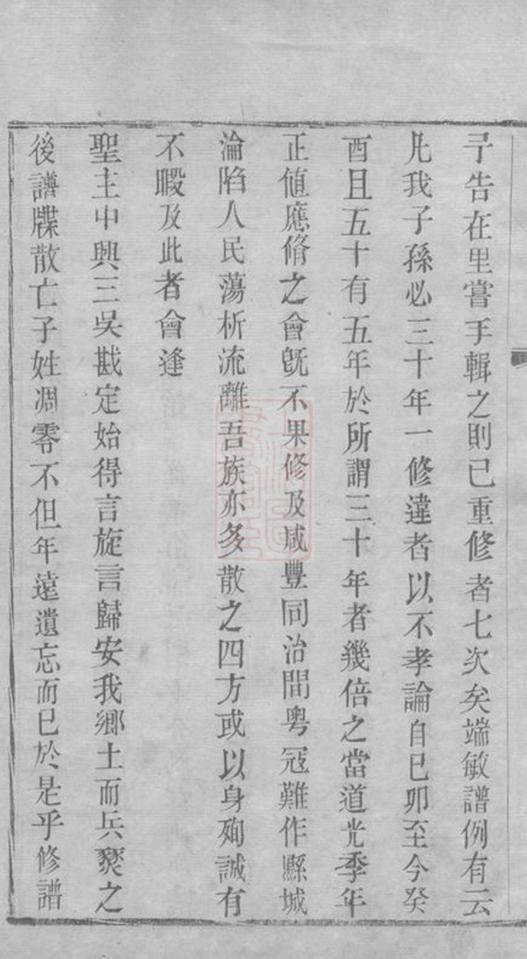 予告在里嘗手輯之則已重修者七次矣端敏譜例有云
凡我子孫必三十年一修違者以不孝論自己卯至今癸
酉且五十有五年於所謂三十年者幾倍之當道光季年
正値應脩之會旣不果修及咸豐同治間粵冦難作縣城
淪陷人民蕩析流離吾族亦多散之四方或以身殉誠有
不暇及此者會逢
聖主中興三吳戡定始得言旋言歸安我鄉土而兵燹之
後譜牒散亡子姓凋零不但年遠遺忘而已於是乎修譜